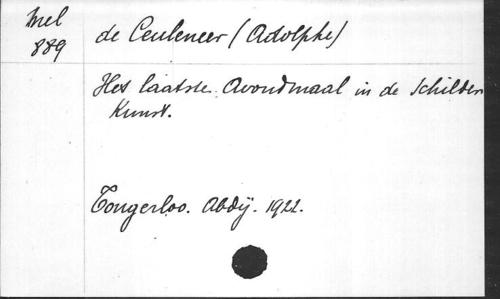 Mel
889
de Ceuleneer (Adolphe)
Het laatste Avondmaal in de Schilder
Kunst.
Tongerloo. Abdij. 1922.